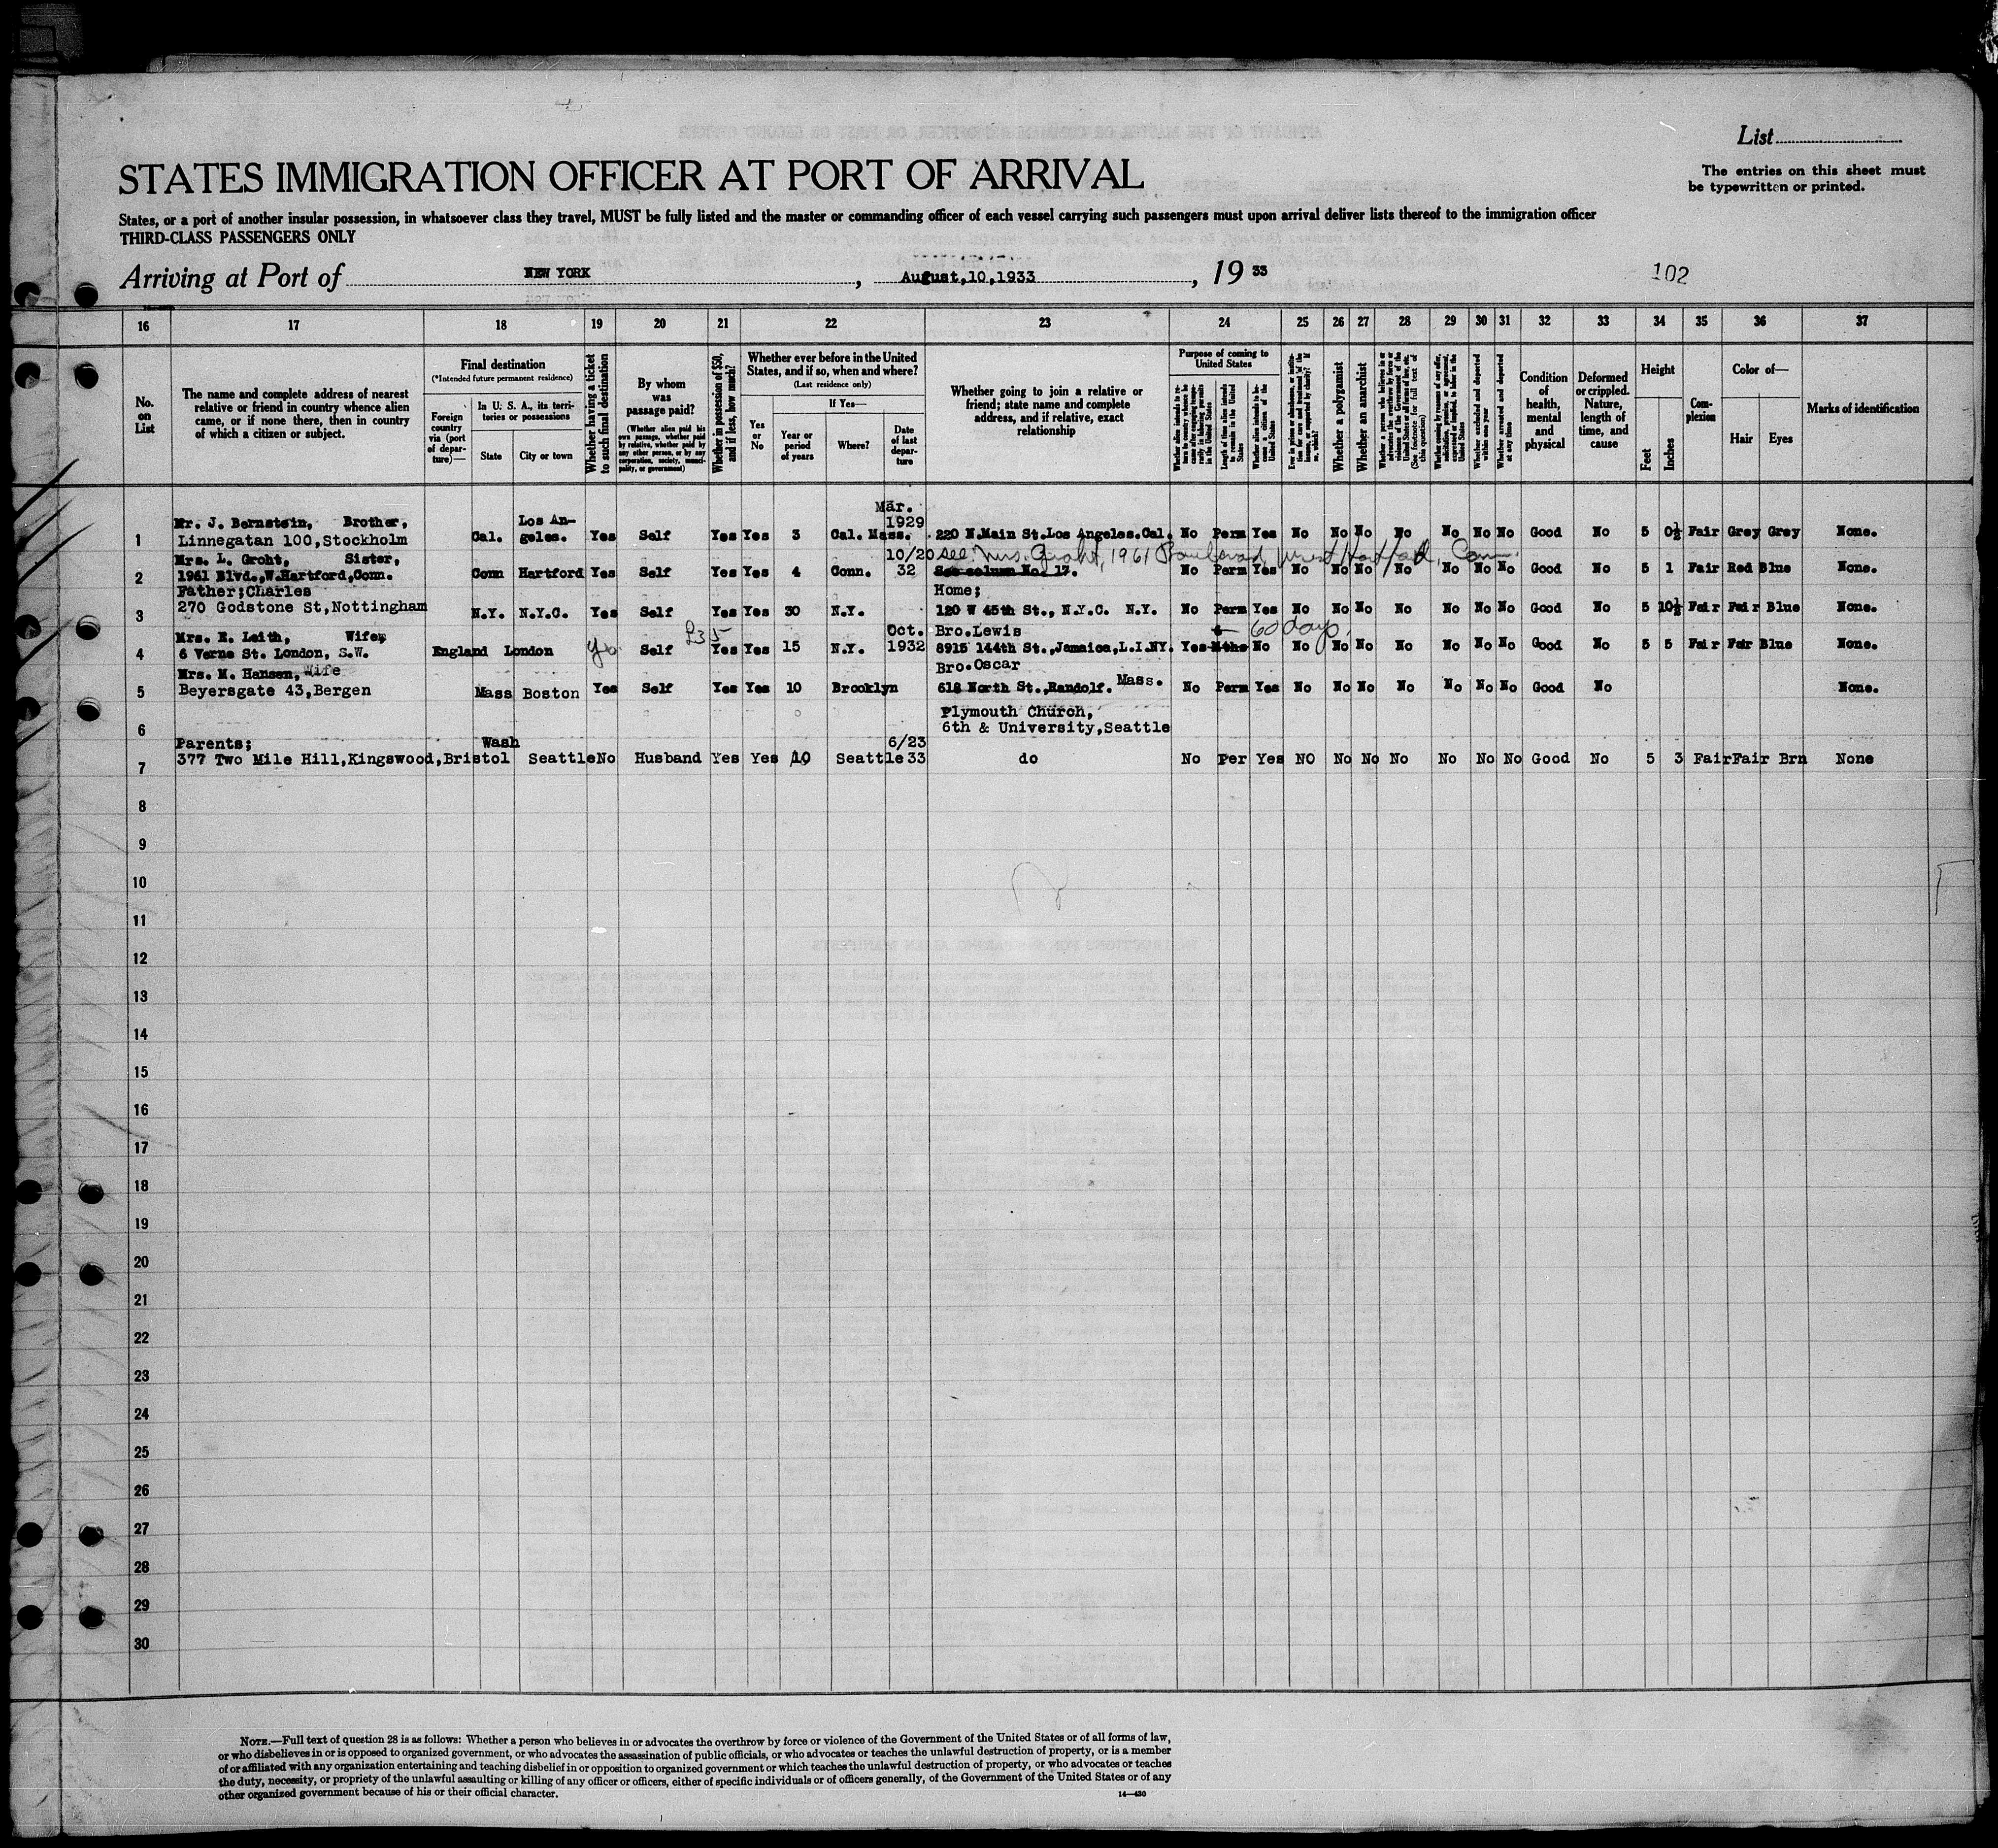 List
The entries on this sheet must
be typewritten or printed.
STATES IMMIGRATION OFFICER AT PORT OF ARRIVAL
States, or a port of another insular possession, in whatsoever class they travel, MUST be fully listed and the master or commanding officer of each vessel carrying such passengers must upon arrival deliver lists thereof to the immigration officer
THIRD-CLASS PASSENGERS ONLY
Arriving at Port of NEW YORK, August,10,1933, 19 33
102
16 17 18 19 20 21 22 23 24 25 26 27 28 29 30 31 32 33 34 35 36 37
No. on List
The name and complete address of nearest
relative or friend in country whence alien
came, or if none there, then in country
of which a citizen or subject.
Final destination
(*Intended future permanent residence)
Foreign country via (port of departure)—
In U. S. A., its territories or possessions
State
City or town
Whether having a ticket to such final destination
By whom was passage paid?
(Whether alien paid his own passage, whether paid by relative, whether paid by any other person, or by any corporation, society, municipality, or government)
Whether in possession of $50, and if less, how much?
Whether ever before in the United
States, and if so, when and where?
(Last residence only)
Yes or No
If Yes—
Year or period of years
Where?
Date of last departure
Whether going to join a relative or
friend; state name and complete
address, and if relative, exact
relationship
Purpose of coming to United States
Length of time alien intends to remain in the United States
Whether alien intends to become a citizen of the United States
Whether a polygamist
Whether an anarchist
Condition of health, mental and physical
Deformed or crippled. Nature, length of time, and cause
Height
Feet
Inches
Complexion
Color of—
Hair
Eyes
Marks of identification
Mar.
Mr. J. Bernstein, Brother, Los An- 1929
1 Linnegatan 100,Stockholm Cal. geles. Yes Self Yes Yes 3 Cal. Mass. 220 N.Main St.Los Angeles.Cal. No Perm Yes No No No No No No No Good No 5 0½ Fair Grey Grey None.
Mrs. L. Groht, Sister, 10/20 see Mrs. Groht, 1961 Boulevard, West Hartford, Conn.
2 1961 Blvd.,W.Hartford,Conn. Conn Hartford Yes Self Yes Yes 4 Conn. 32 See column No. 17. No Perm Yes No No No No No No No Good No 5 1 Fair Red Blue None.
Father;Charles Home;
3 270 Godstone St,Nottingham N.Y. N.Y.C. Yes Self Yes Yes 30 N.Y. 120 W 45th St., N.Y.C. N.Y. No Perm Yes No No No No No No No Good No 5 10½ Fair Fair Blue None.
Mrs. E. Leith, Wife, £35 Oct. Bro.Lewis 60 days.
4 6 Verne St. London, S.W. England London Yes Self Yes Yes 15 N.Y. 1932 8915 144th St.,Jamaica,L.I.NY. Yes Mths No No No No No No No No Good No 5 5 Fair Fair Blue None.
Mrs. M. Hansen, Wife Bro.Oscar
5 Beyersgate 43,Bergen Mass Boston Yes Self Yes Yes 10 Brooklyn 618 North St.,Randolf. Mass. No Perm Yes No No No No No No No Good No None.
Plymouth Church,
6 6th & University,Seattle
Parents; Wash 6/23
7 377 Two Mile Hill,Kingswood,Bristol Seattle No Husband Yes Yes 10 Seattle 33 do No Per Yes NO No No No No No No Good No 5 3 Fair Fair Brn None
8
9
10
11
12
13
14
15
16
17
18
19
20
21
22
23
24
25
26
27
28
29
30
NOTE.—Full text of question 28 is as follows: Whether a person who believes in or advocates the overthrow by force or violence of the Government of the United States or of all forms of law,
or who disbelieves in or is opposed to organized government, or who advocates the assassination of public officials, or who advocates or teaches the unlawful destruction of property, or is a member
of or affiliated with any organization entertaining and teaching disbelief in or opposition to organized government or which teaches the unlawful destruction of property, or who advocates or teaches
the duty, necessity, or propriety of the unlawful assaulting or killing of any officer or officers, either of specific individuals or of officers generally, of the Government of the United States or of any
other organized government because of his or their official character.
14—430